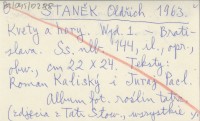 STANĚK Oldřich 1963.
Kvety a hory. Wyd. 1. – Brati-
slava. Ss. nlb. 144, il., opr.,
obw., cm 22 X 24. Teksty:
Roman Kaliský i Juraj Pacl.
Album fot. roślin tatrz.
(zdjęcia z Tatr Słow., wszystkie